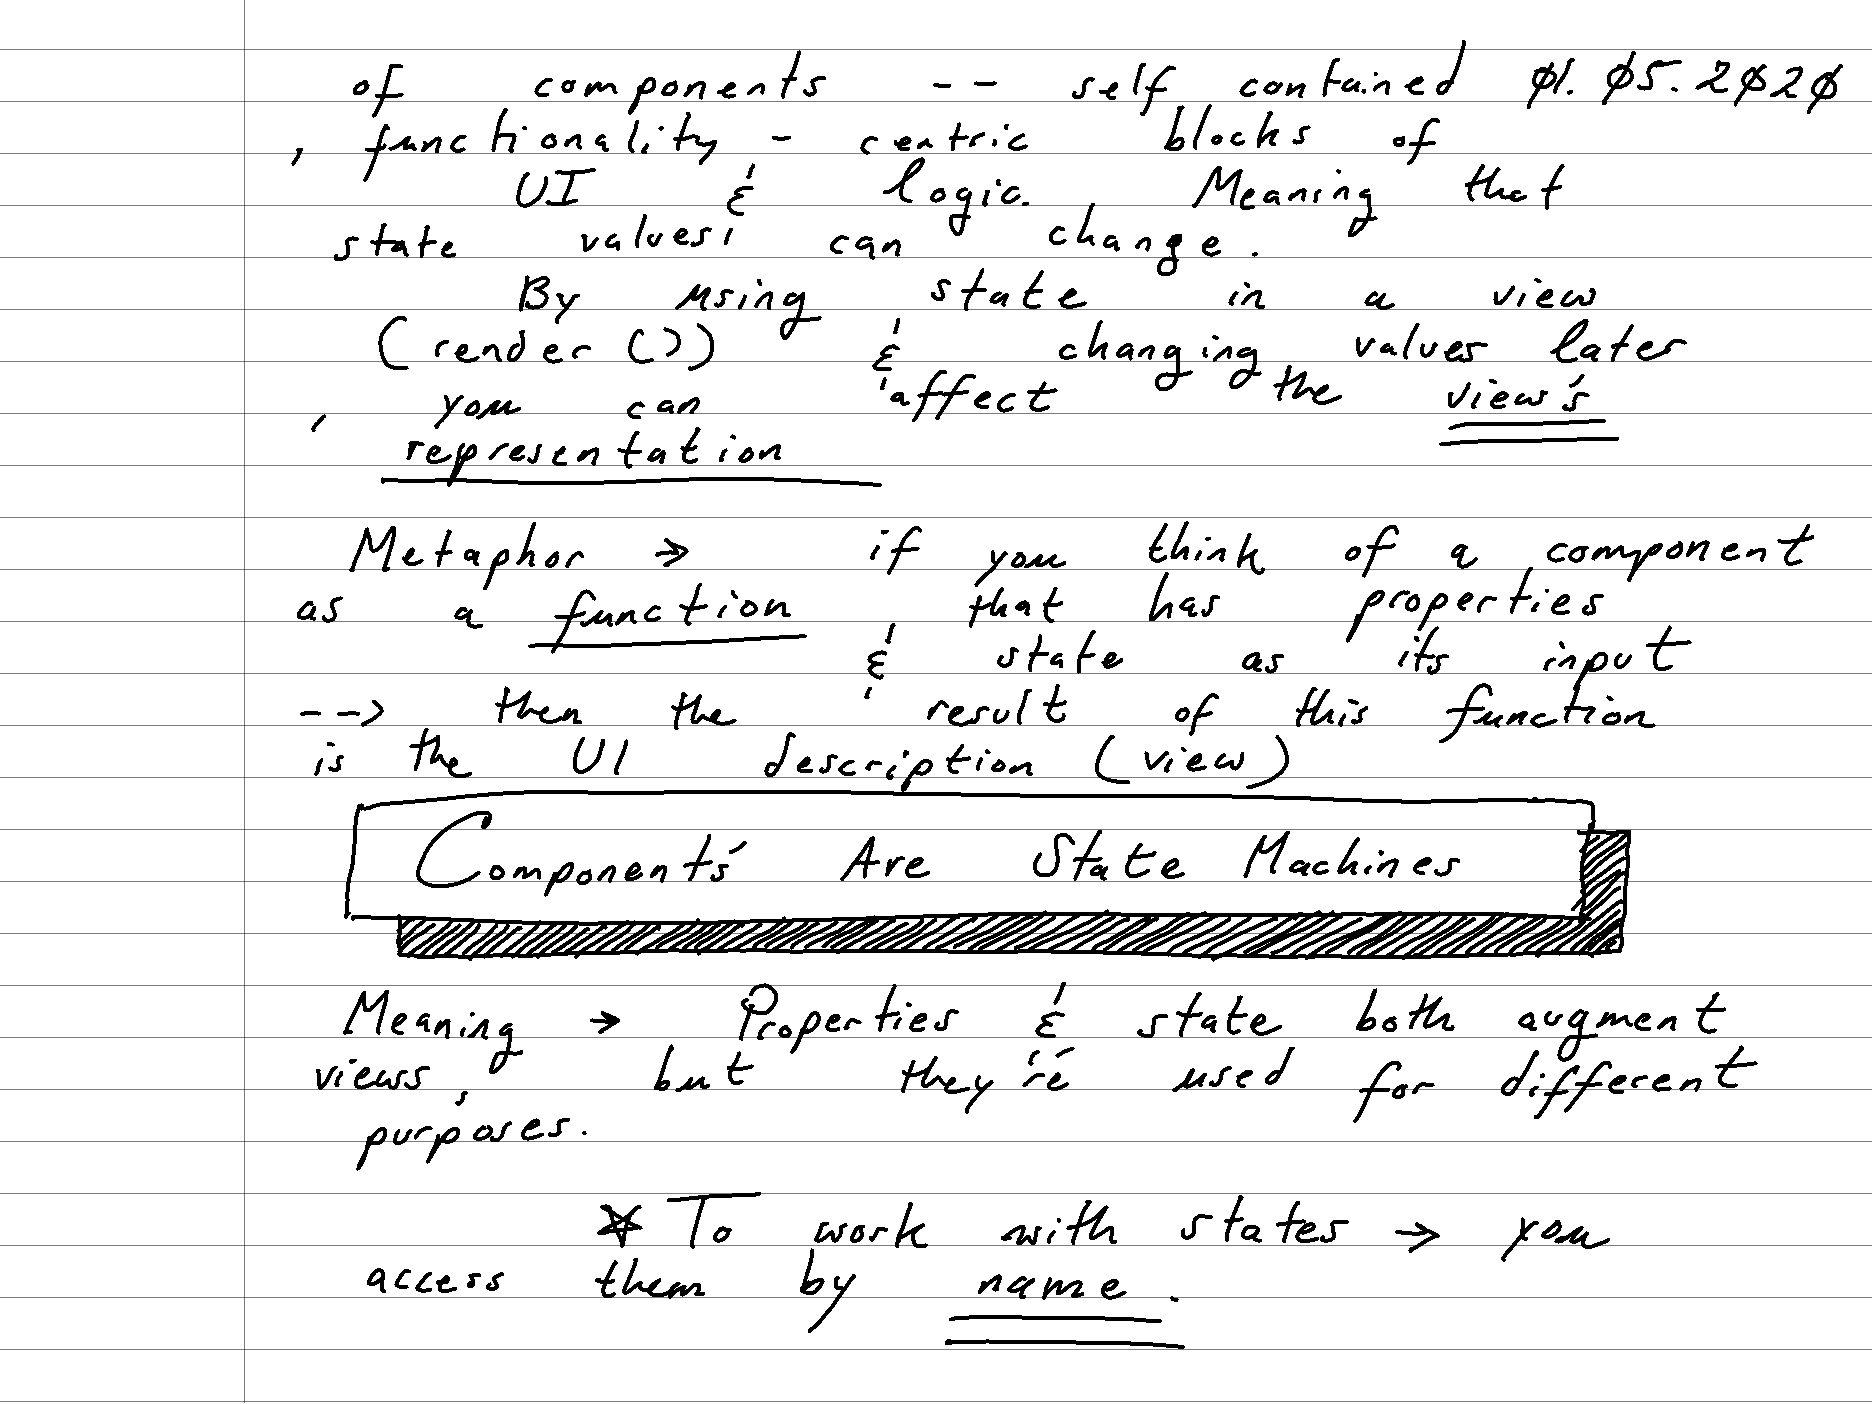 of components -- self contained 01.05.2020
, functionality - centric blocks of
UI & logic. Meaning that
state values, can change.
By using state in a view
(render ()) & changing values later
, you can affect the view's
representation
Metaphor → if you think of a component
as a function that has properties
& state as its input
--> then the result of this function
is the UI description (view)
Component's Are State Machines
Meaning → Properties & state both augment
views, but they're used for different
purposes.
* To work with states → you
access them by name.